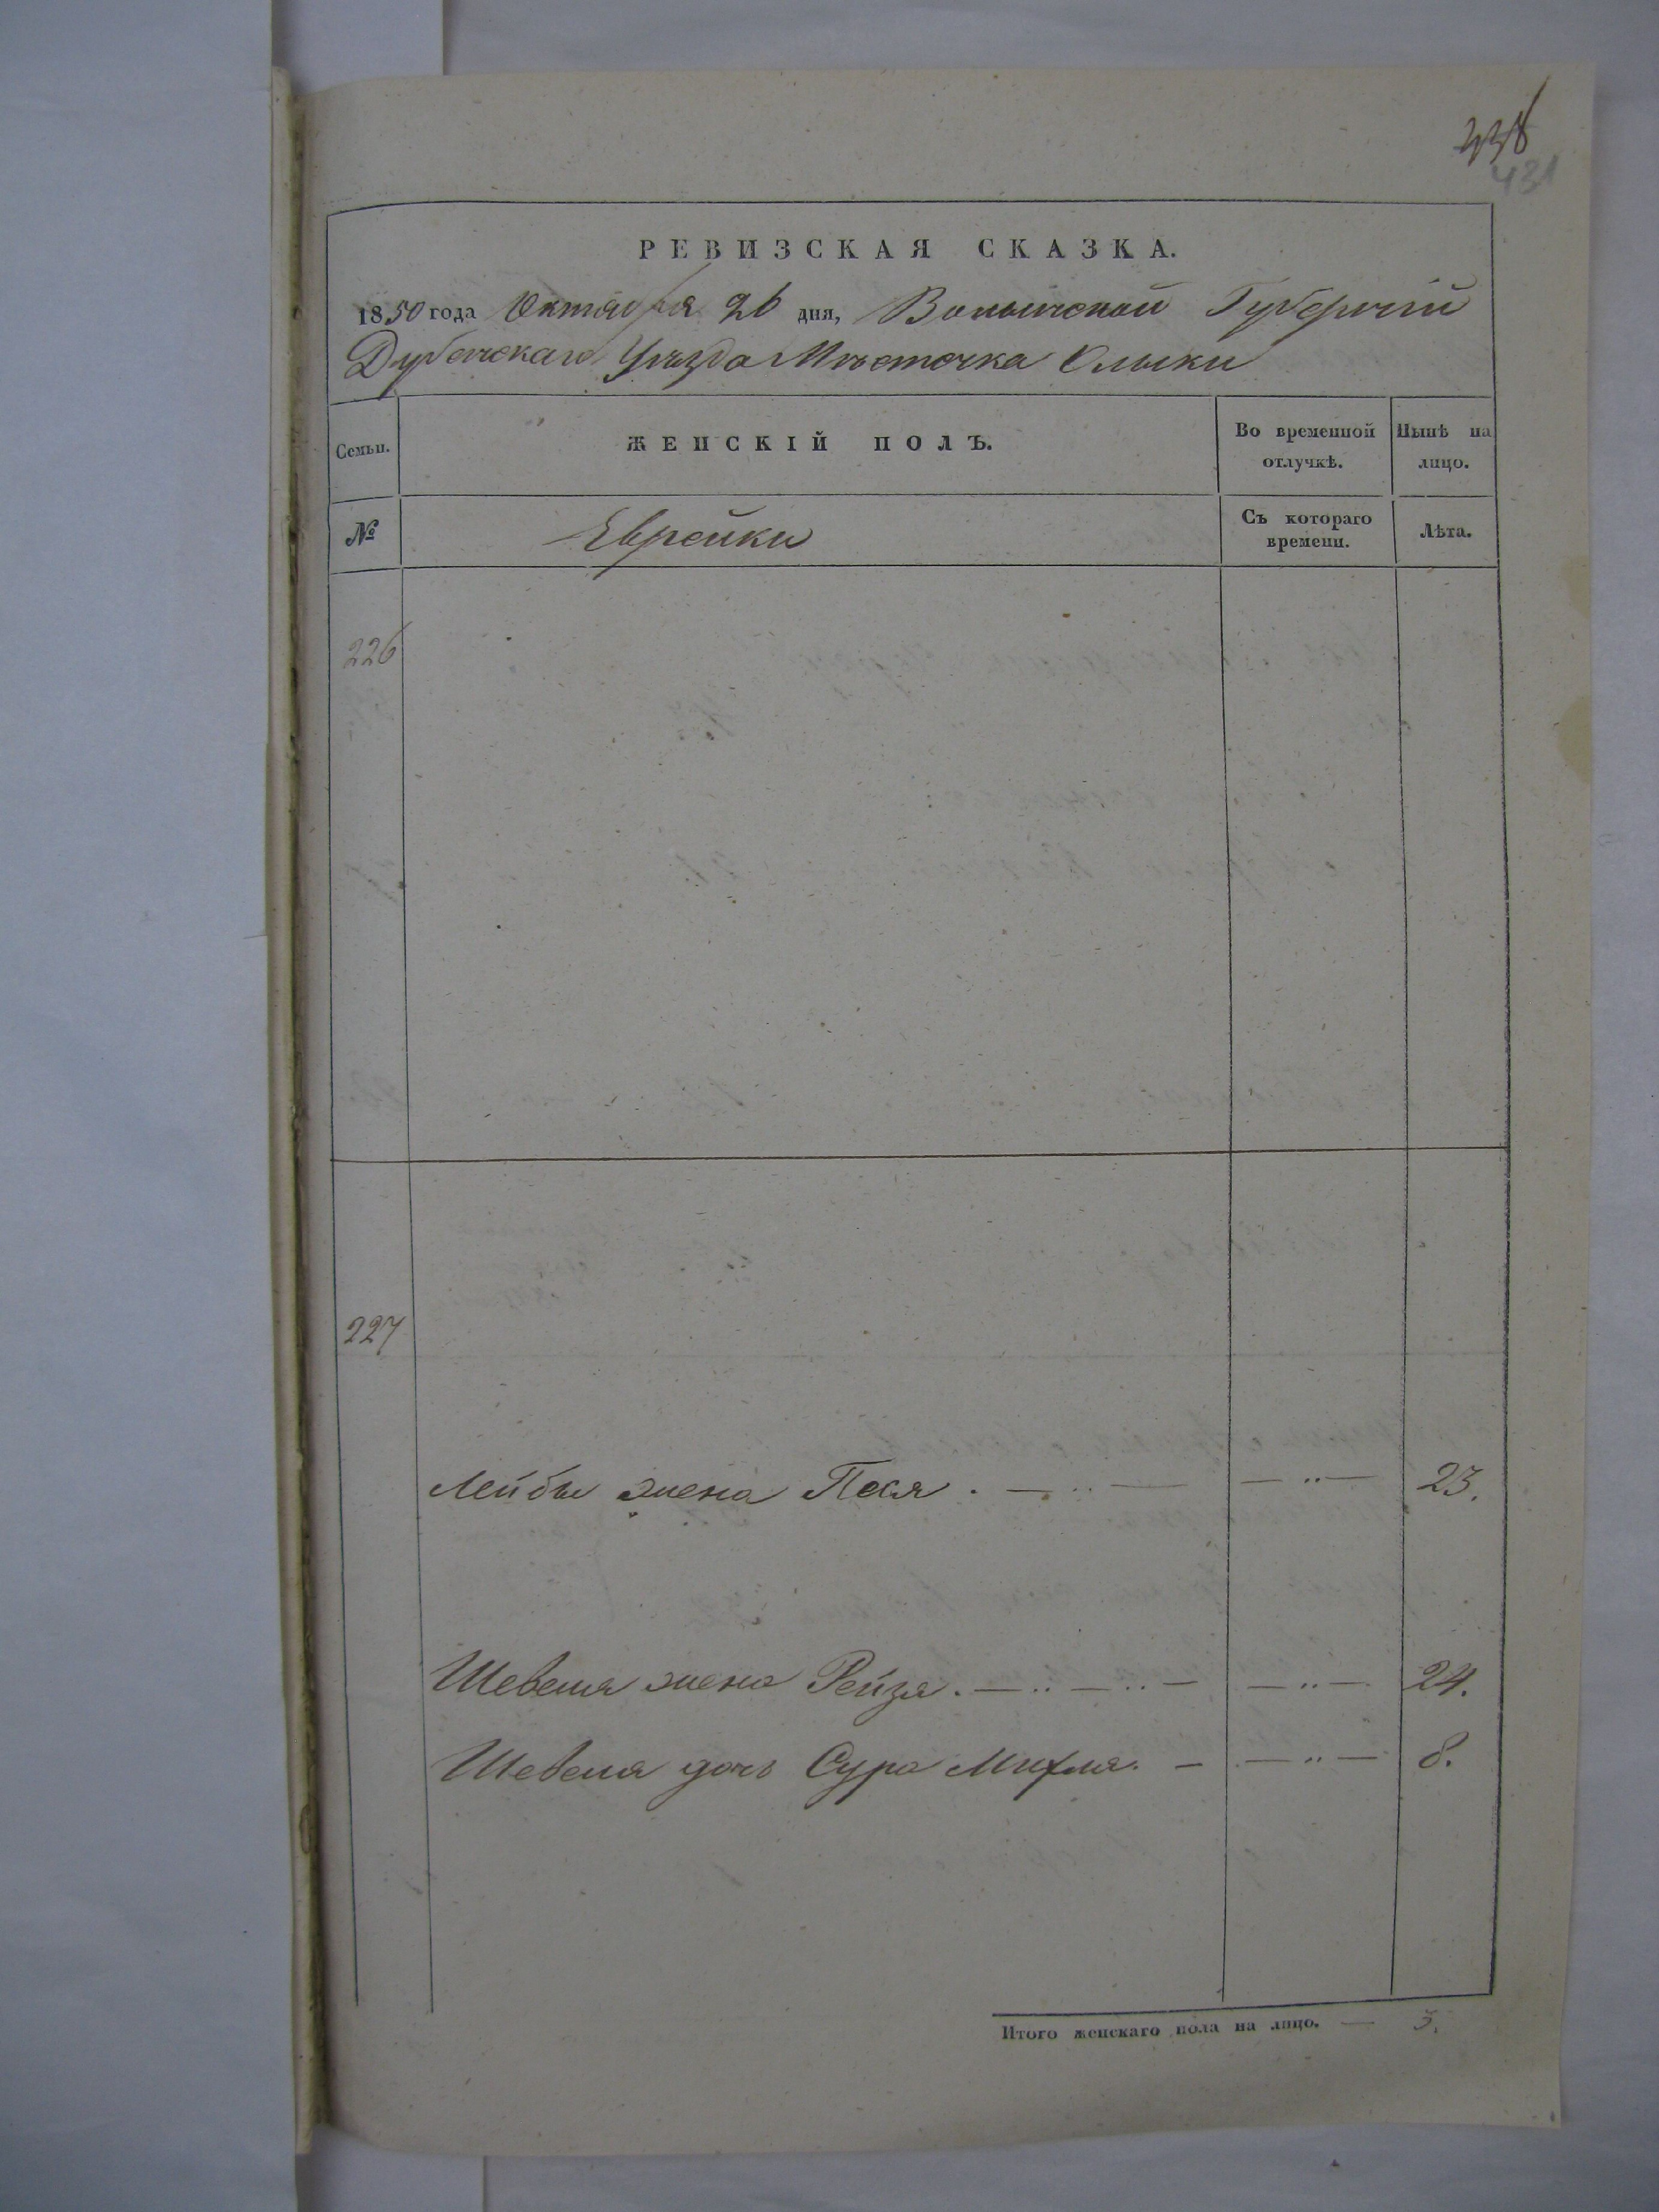 431
РЕВИЗСКАЯ СКАЗКА.
1850 года Октября 26 дня, Волынской Губерніи
Дубенскаго Уѣзда Мѣстечка Олыки
Семьи.
ЖЕНСКІЙ ПОЛЪ.
Во временной отлучкѣ.
Нынѣ на лицо.
№
Еврейки
Съ котораго времени.
Лѣта.
226
227
Лейбы жена Песя . — „ — — „ — 23.
Шевеля жена Рейзя . — „ — „ — — „ — 24.
Шевеля дочь Сура Михля. — — „ — 8.
Итого женскаго пола на лицо. — 3.